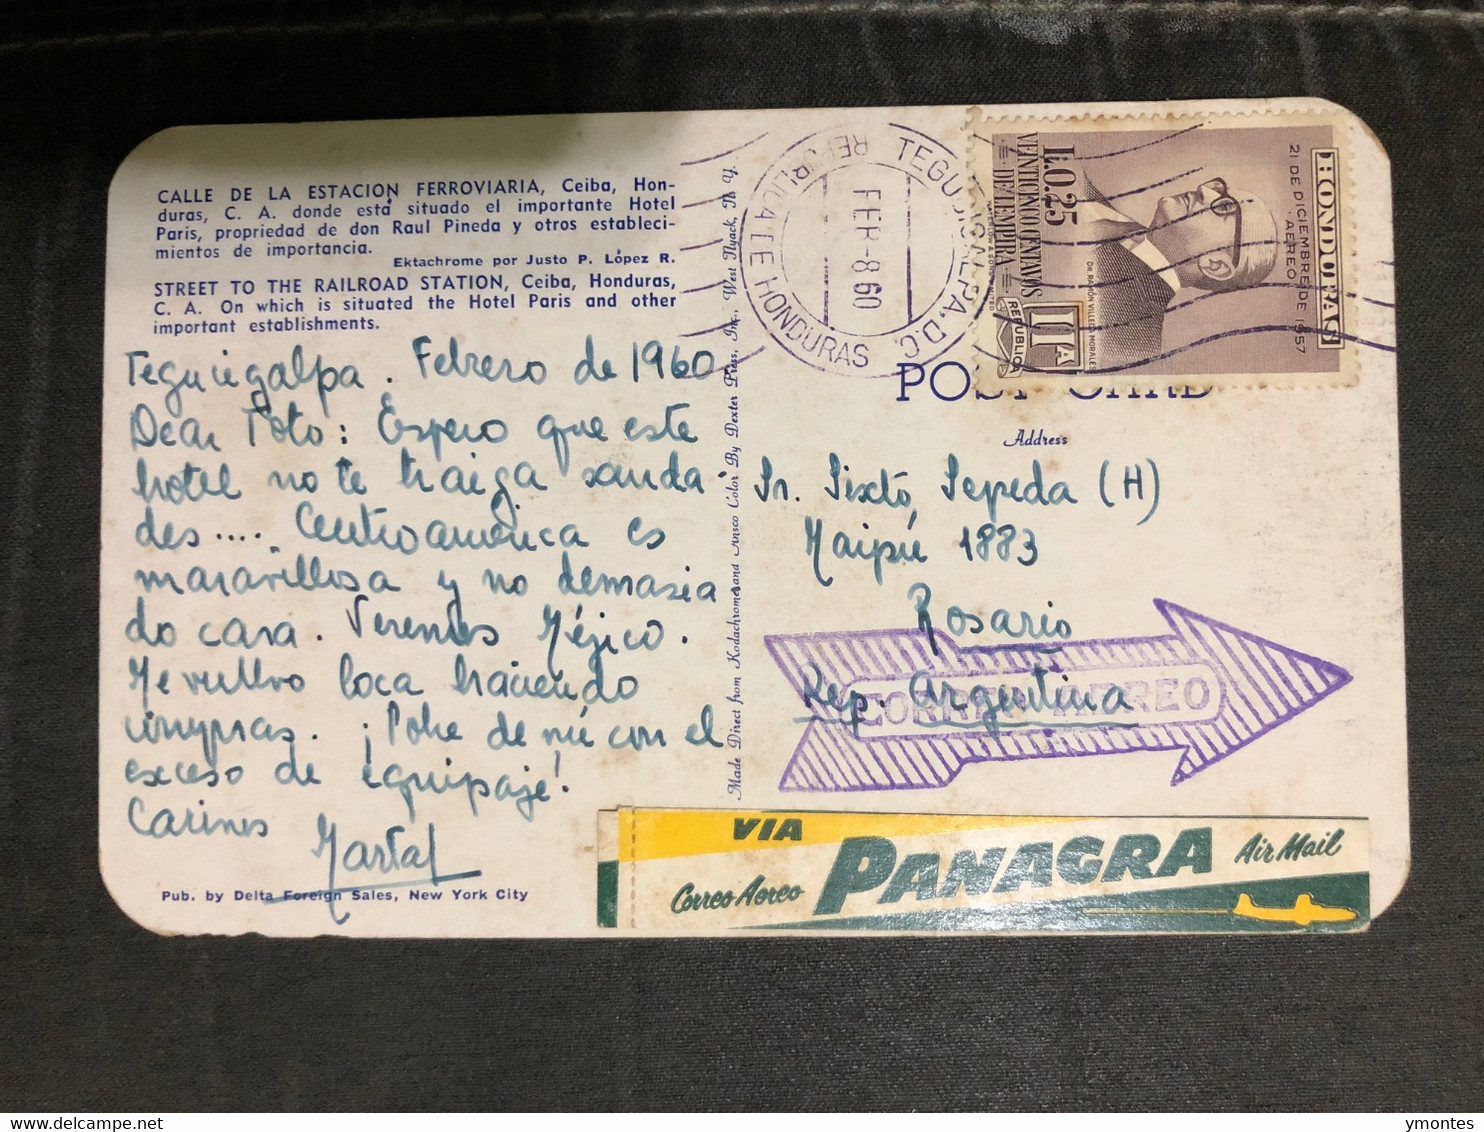 CALLE DE LA ESTACION FERROVIARIA, Ceiba, Hon-
duras, C. A. donde está situado el importante Hotel
Paris, propiedad de don Raul Pineda y otros estableci-
mientos de importancia.
Ektachrome por Justo P. López R.
STREET TO THE RAILROAD STATION, Ceiba, Honduras,
C. A. On which is situated the Hotel Paris and other
important establishments.
Tegucigalpa. Febrero de 1960
Dear Toto: Espero que este
hotel no te traiga sauda-
des.... Centroamérica es
maravillosa y no demasia
do cara. Veremos Méjico.
Me vuelvo loca haciendo
compras. ¡Pobre de mí con el
exceso de equipaje!
Cariños
Marta
Pub. by Delta Foreign Sales, New York City
Made Direct from Kodachrome and Ansco Color By Dexter Press, Inc., West Nyack, N. Y.
TEGUCIGALPA, D.C.
REPUBLICA DE HONDURAS
FEB-8 60
HONDURAS
21 DE DICIEMBRE DE 1957
AEREO
DR RAMON VILLEDA MORALES
L.0.25
VEINTICINCO CENTAVOS
DE LEMPIRA
IIA
REPUBLICA
POST CARD
Address
Sr. Sixto Sepeda (H)
Maipú 1883
Rosario
Rep. Argentina
CORREO AEREO
VIA PANAGRA Air Mail
Correo Aereo
ymontes